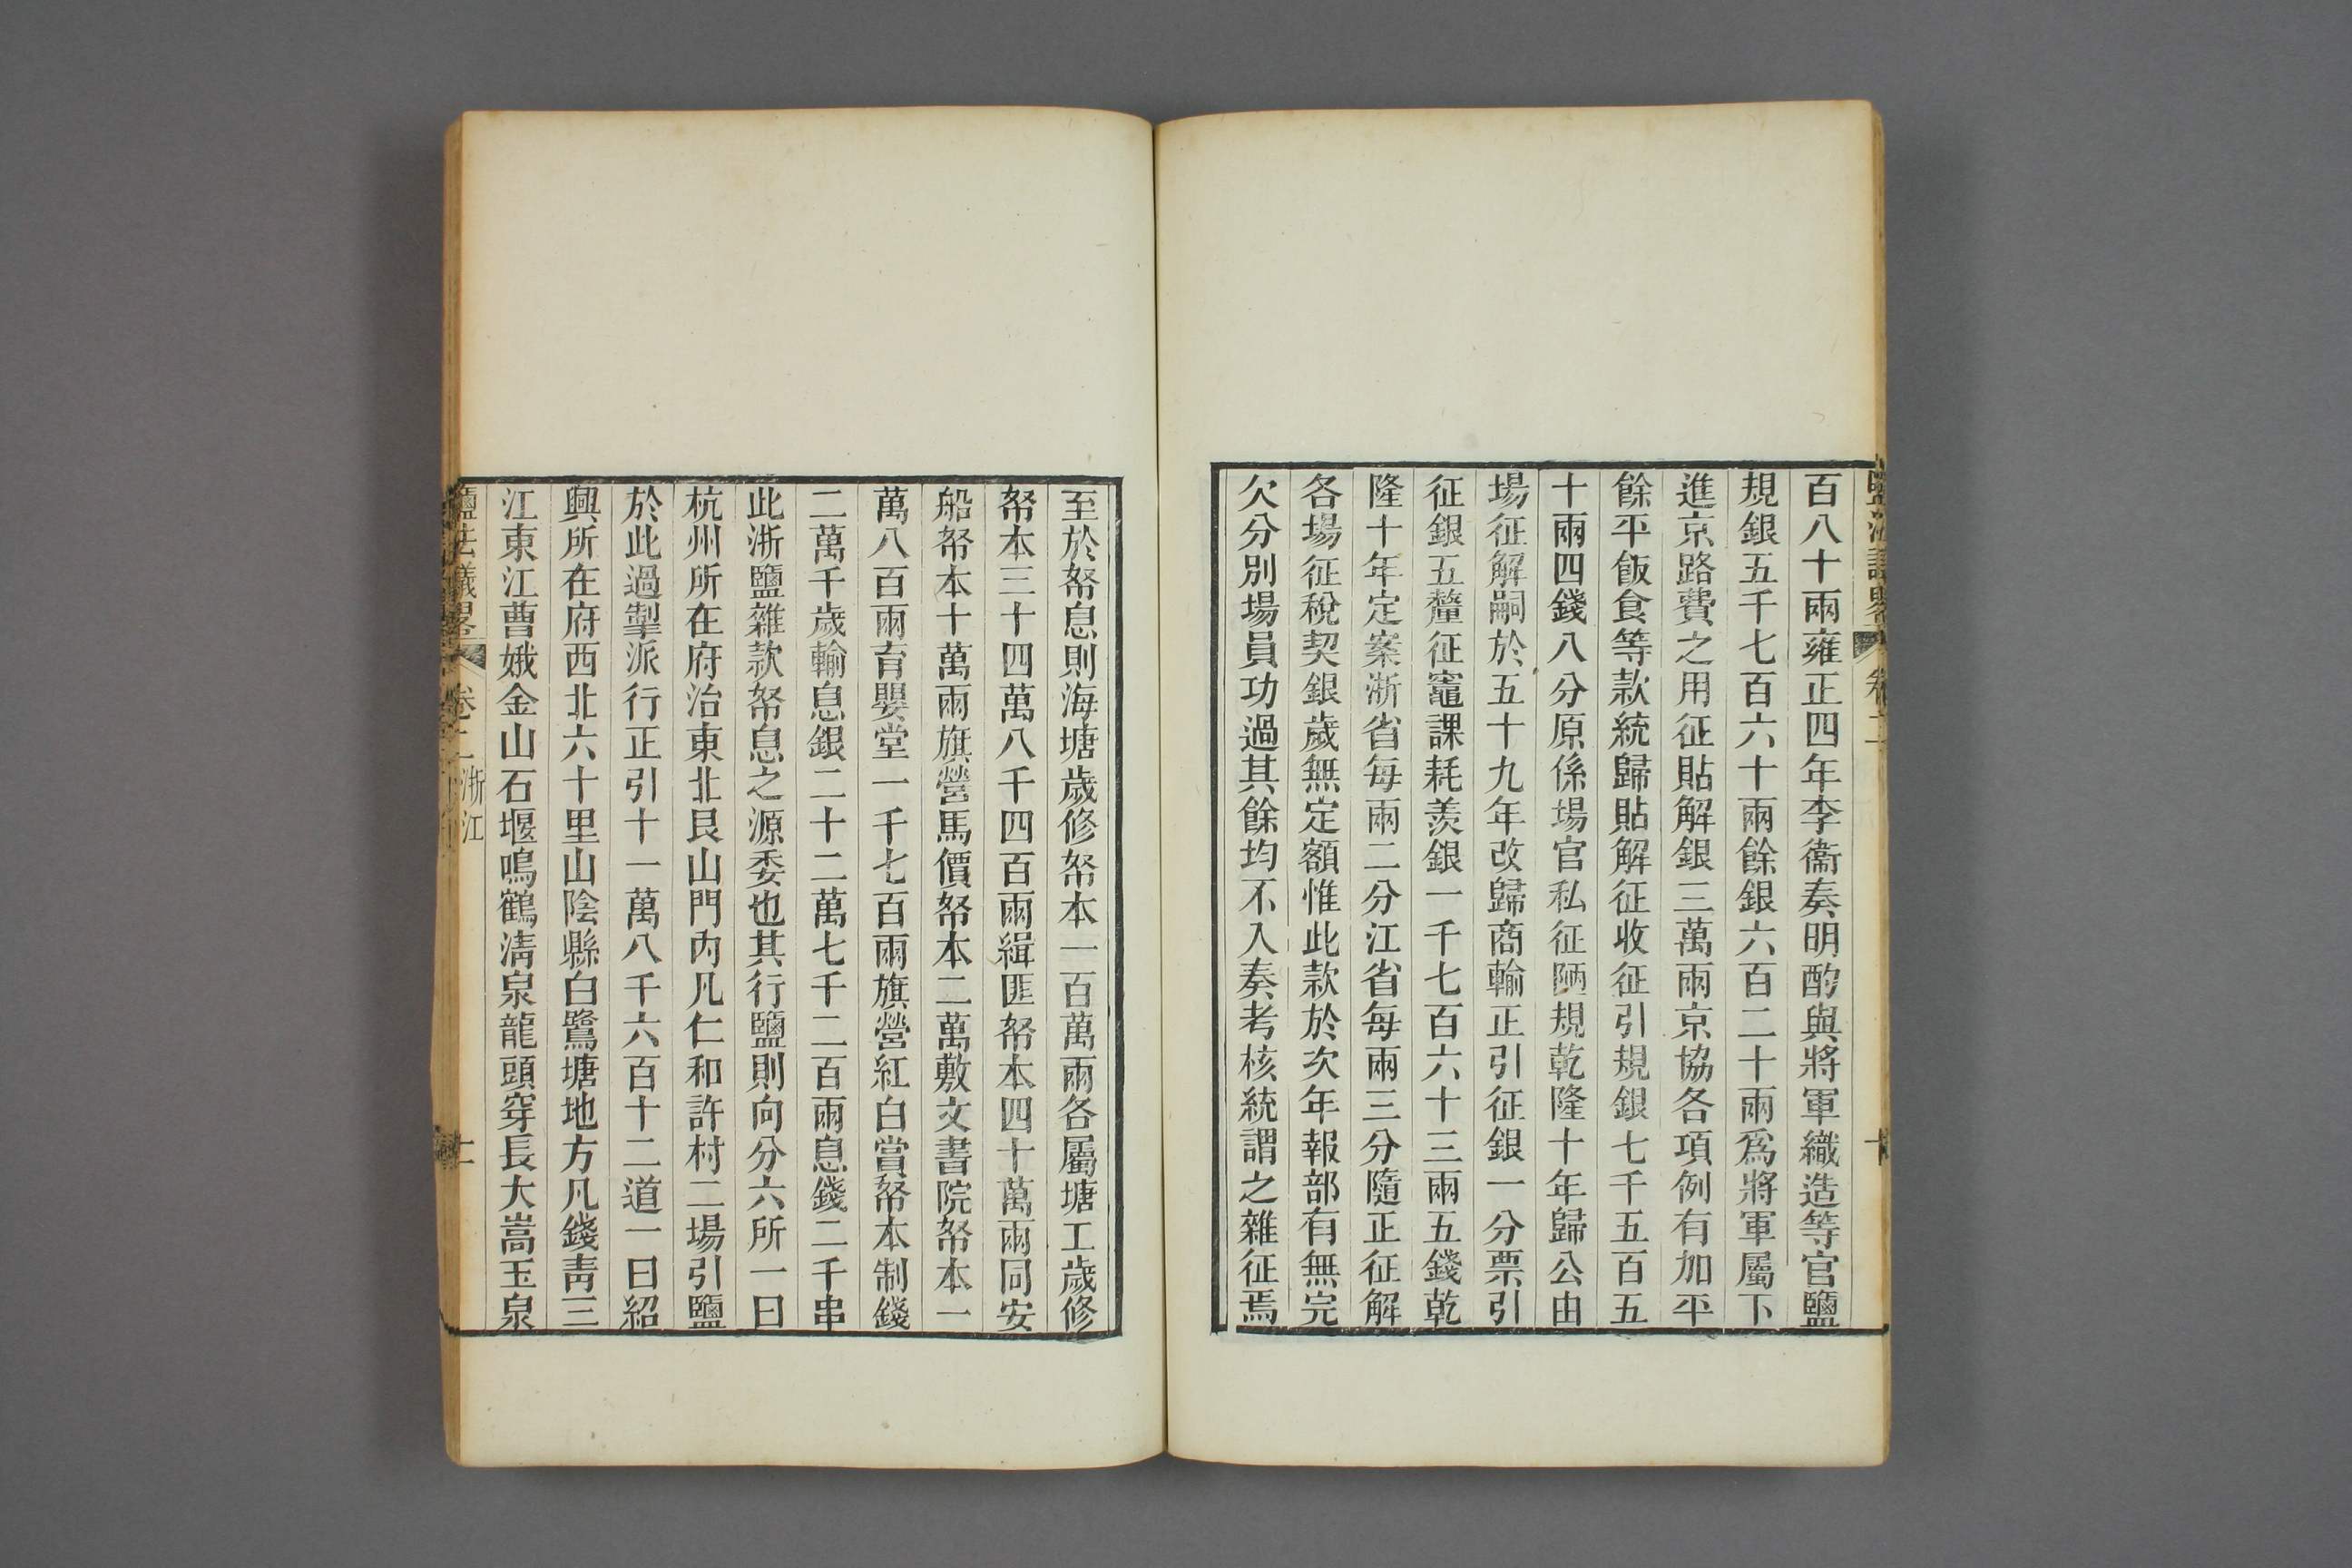 百八十兩雍正四年李衞奏明酌與將軍織造等官鹽
規銀五千七百六十兩餘銀六百二十兩爲將軍屬下
進京路費之用征貼解銀三萬兩京協各項例有加平
餘平飯食等款統歸貼解征收征引規銀七千五百五
十兩四錢八分原係場官私征陋規乾隆十年歸公由
場征解嗣於五十九年改歸商輸正引征銀一分票引
征銀五釐征竈課耗羨銀一千七百六十三兩五錢乾
隆十年定案浙省每兩二分江省每兩三分隨正征解
各場征稅契銀歲無定額惟此款於次年報部有無完
欠分別場員功過其餘均不入奏考核統謂之雜征焉
至於帑息則海塘歲修帑本一百萬兩各屬塘工歲修
帑本三十四萬八千四百兩緝匪帑本四十萬兩同安
船帑本十萬兩旗營馬價帑本二萬敷文書院帑本一
萬八百兩育嬰堂一千七百兩旗營紅白賞帑本制錢
二萬千歲輸息銀二十二萬七千二百兩息錢二千串
此浙鹽雜款帑息之源委也其行鹽則向分六所一曰
杭州所在府治東北艮山門內凡仁和許村二場引鹽
於此過掣派行正引十一萬八千六百十二道一曰紹
興所在府西北六十里山陰縣白鷺塘地方凡錢青三
江東江曹娥金山石堰鳴鶴清泉龍頭穿長大嵩玉泉
鹽法議畧 卷二 浙江